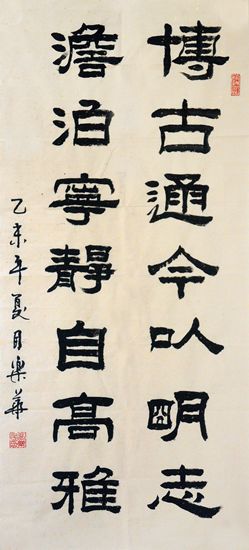 博古通今以明志
澹泊寧靜自高雅
乙未年夏月樂華